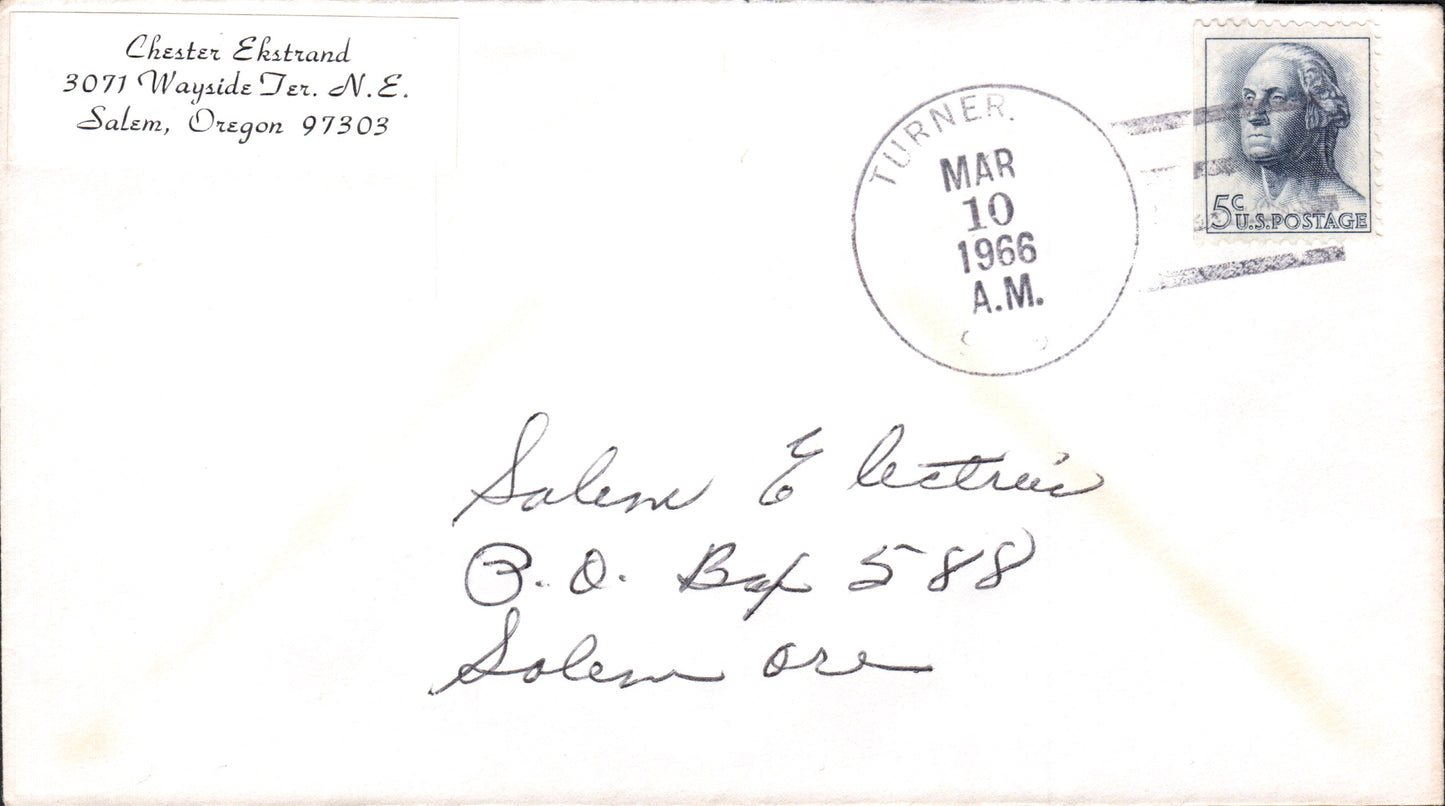 Chester Ekstrand
3071 Wayside Ter. N.E.
Salem, Oregon 97303
TURNER.
MAR
10
1966
A.M.
5c
U.S.POSTAGE
Salem Electric
P.O. Box 588
Salem Ore